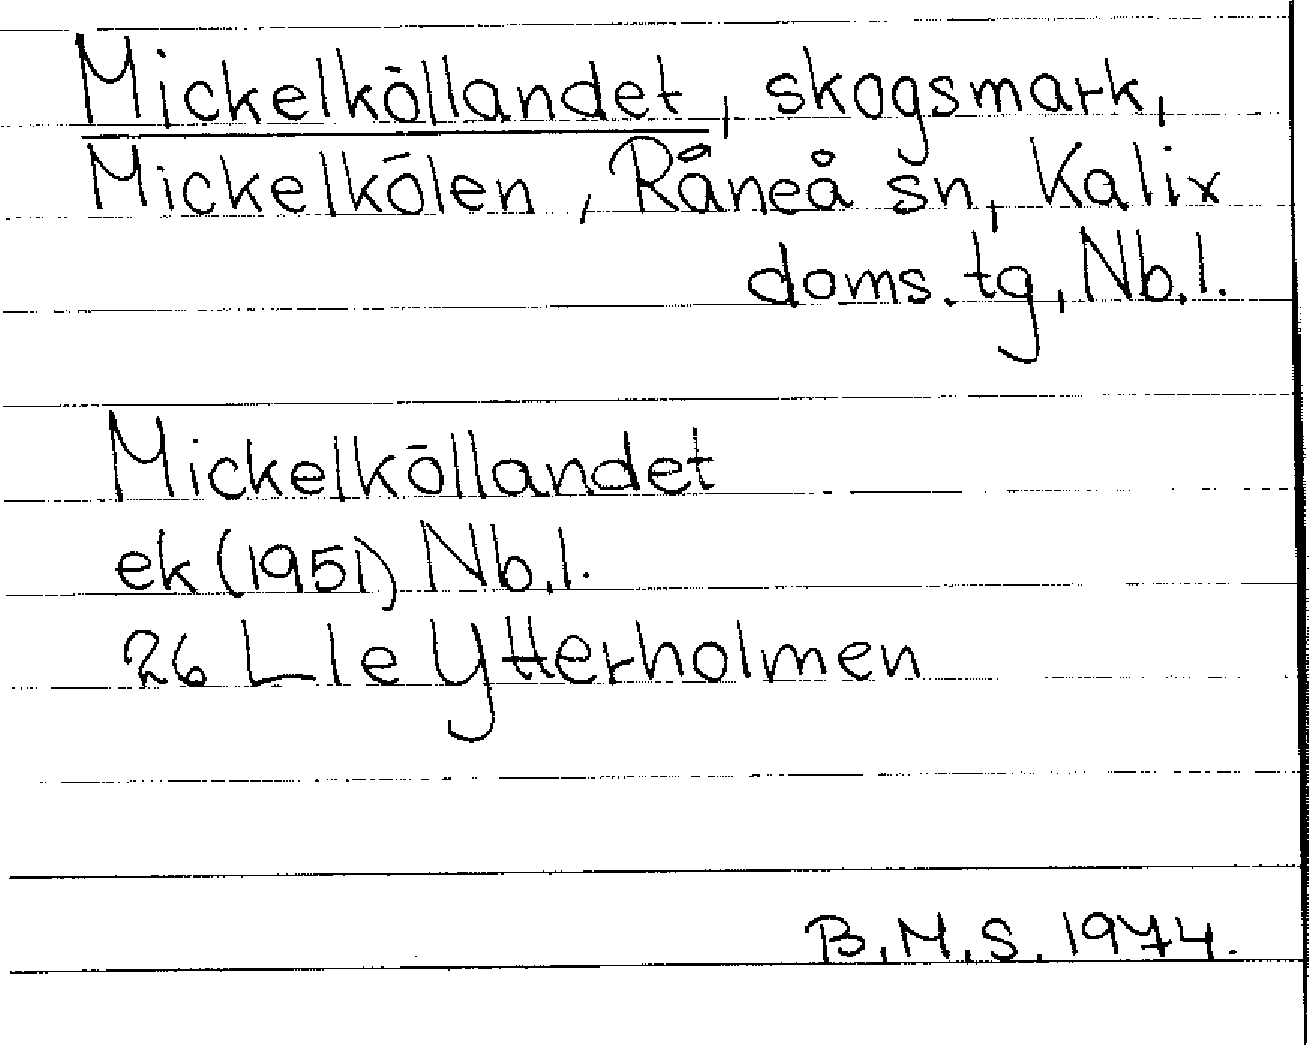 Mickelköllandet, skogsmark,
Mickelkölen, Råneå sn, Kalix
doms. tg, Nb.l.
Mickelköllandet
ek (1951) Nb.l.
26 L le Ytterholmen
B.M.S. 1974.